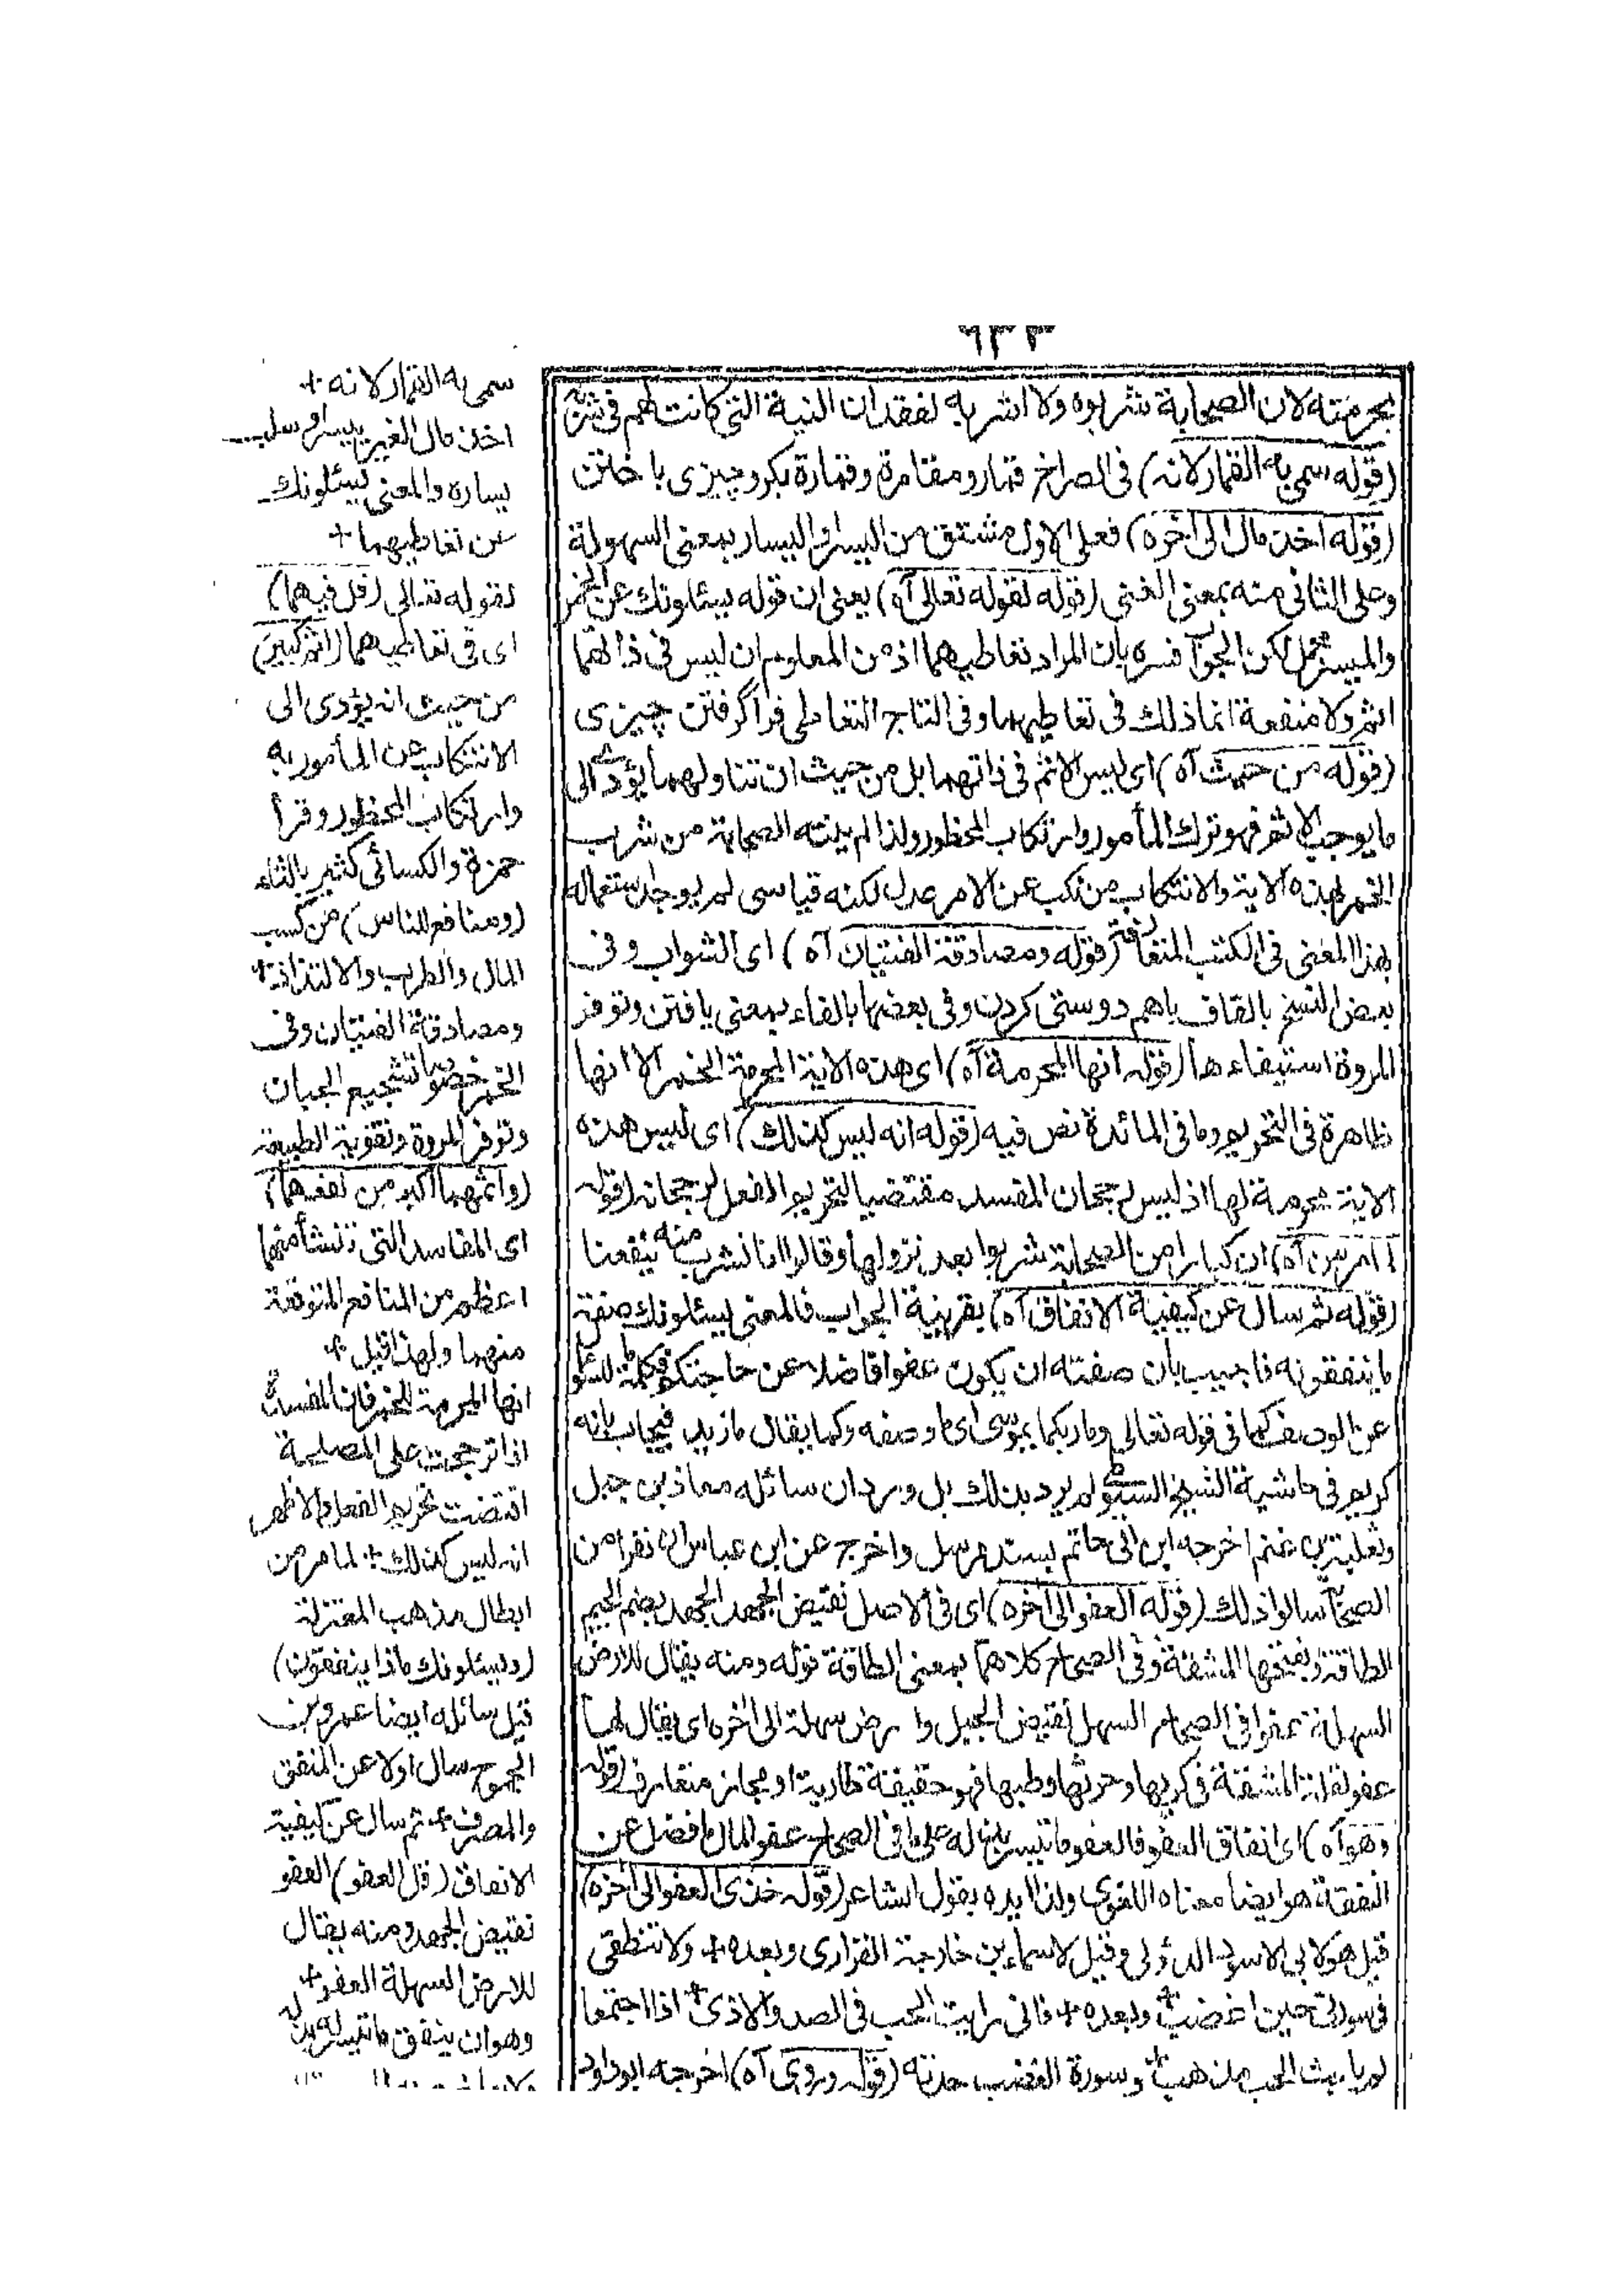 ٦٣٣
بحرمته لان الصحابة شربوه ولا اشربه لفقدان النية التى كانت لهم فى شربه
(قوله سمى به القمار لانه) فى الصراح قمار ومقامرة وقمارة بگرو چيزى با ختن
(قوله اخذ مال الى اخره) فعلى الاول مشتق من اليسر واليسار بمعنى السهولة
وعلى الثانى منه بمعنى الغنى (قوله لقوله تعالى آه) يعنى ان قوله يسئلونك عن الخمر
والميسر مجمل لكن الجواب فسره بان المراد تعاطيهما اذ من المعلوم ان ليس فى ذاتهما
اثم ولا منفعة انما ذلك فى تعاطيهما وفى التاج التعاطى فرا گرفتن چيزى
(قوله من حيث آه) اى ليس الاثم فى ذاتهما بل من حيث ان تناولهما يؤدى الى
ما يوجب الاثم فهو ترك المأمور وارتكاب المحظور ولذا لم ينته الصحابة من شرب
الخمر لهذه الاية والانتكاب من نكب عن الامر عدل لكنه قياسى لم يوجد استعماله
بهذا المعنى فى الكتب المتعارفة (قوله ومصادقة الفتيان آه) اى الشواب وفى
بعض النسخ بالقاف باهم دوستى كردن وفى بعضها بالفاء بمعنى يافتن وتوفر
المروة استيفاءها (قوله انها المحرمة آه) اى هذه الاية المحرمة الخمر الا انها
ظاهرة فى التحريم وما فى المائدة نص فيه (قوله انه ليس كذلك) اى ليس هذه
الاية محرمة لها اذ ليس رجحان المفسد مقتضيا لتحريم الفعل لرجحانه (قوله
لما مر من آه) ان كبارا من الصحابة شربوا بعد نزولها وقالوا انا نشرب منه ينفعنا
(قوله ثم سال عن كيفية الانفاق آه) بقرينة الجواب فالمعنى يسئلونك صفة
ما ينفقونه فاجيب بان صفته ان يكون عفوا فاضلا عن حاجتكم فكلمة ما للسؤال
عن الوصف كما فى قوله تعالى وما ربكما يموسى اى ما وصفه وكما يقال ما زيد فيجاب بانه
كريم فى حاشية الشيخ السيوطى لم يرد بذلك بل ورد ان سائله معاذ بن جبل
وثعلبة بن غنم اخرجه ابن ابى حاتم بسند مرسل واخرج عن ابن عباس ان نفرا من
الصحابة سالوا ذلك (قوله العفو الى اخره) اى فى الاصل نقيض الجهد الجهد بضم الجيم
الطاقة وبفتحها المشقة وفى الصحاح كلاهما بمعنى الطاقة قوله ومنه يقال للارض
السهلة عفوا فى الصحاح السهل نقيض الجبل وارض سهلة الى اخره اى يقال لها
عفو لقلة المشقة فى كربها وحرثها وطيها فهو حقيقة طارية او مجاز متعارف (قوله
وهو آه) اى انفاق العفو فالعفو ما تيسر بذله على ما فى الصحاح عفو المال ما فضل عن
النفقة هو ايضا معناه اللغوى ولذا ايده بقول الشاعر (قوله خذى العفو الى اخره)
قيل هو لابى الاسود الدؤلى وقيل لاسماء بن خارجة الفزارى وبعده + ولا تنطقى
فى سورتى حين اغضب + وبعده + فانى رايت الحب فى الصدر والاذى + اذا اجتمعا
لم يلبث الحب يذهب + وسورة الغضب حدته (قوله وروى آه) اخرجه ابو داود
سمى به القمار لانه +
اخذ مال الغير بيسر او سلب
يساره والمعنى يسئلونك
عن تعاطيهما +
لقوله تعالى (قل فيهما)
اى فى تعاطيهما (اثم كبير)
من حيث انه يؤدى الى
الانتكاب عن المأمور به
وارتكاب المحظور وقرأ
حمزة والكسائى كثير بالثاء
(ومنافع للناس) من كسب
المال والطرب والالتذاذ +
ومصادقة الفتيان وفى
الخمر خصوصا تشجيع الجبان
وتوفر المروة وتقوية الطبيعة
(واثمهما اكبر من نفعهما)
اى المفاسد التى تنشأ منهما
اعظم من المنافع المتوقعة
منهما ولهذا قيل +
انها المحرمة للخمر فان المفسدة
اذا ترجحت على المصلحة
اقتضت تحريم الفعل والاظهر
انه ليس كذلك + لما مر من
ابطال مذهب المعتزلة
(ويسئلونك ماذا ينفقون)
قيل سائله ايضا عمرو بن
الجموح سال اولا عن المنفق
والمصرف + ثم سال عن كيفية
الانفاق (قل العفو) العفو
نقيض الجهد ومنه يقال
للارض السهلة العفو +
وهو ان ينفق ما تيسر له بذله